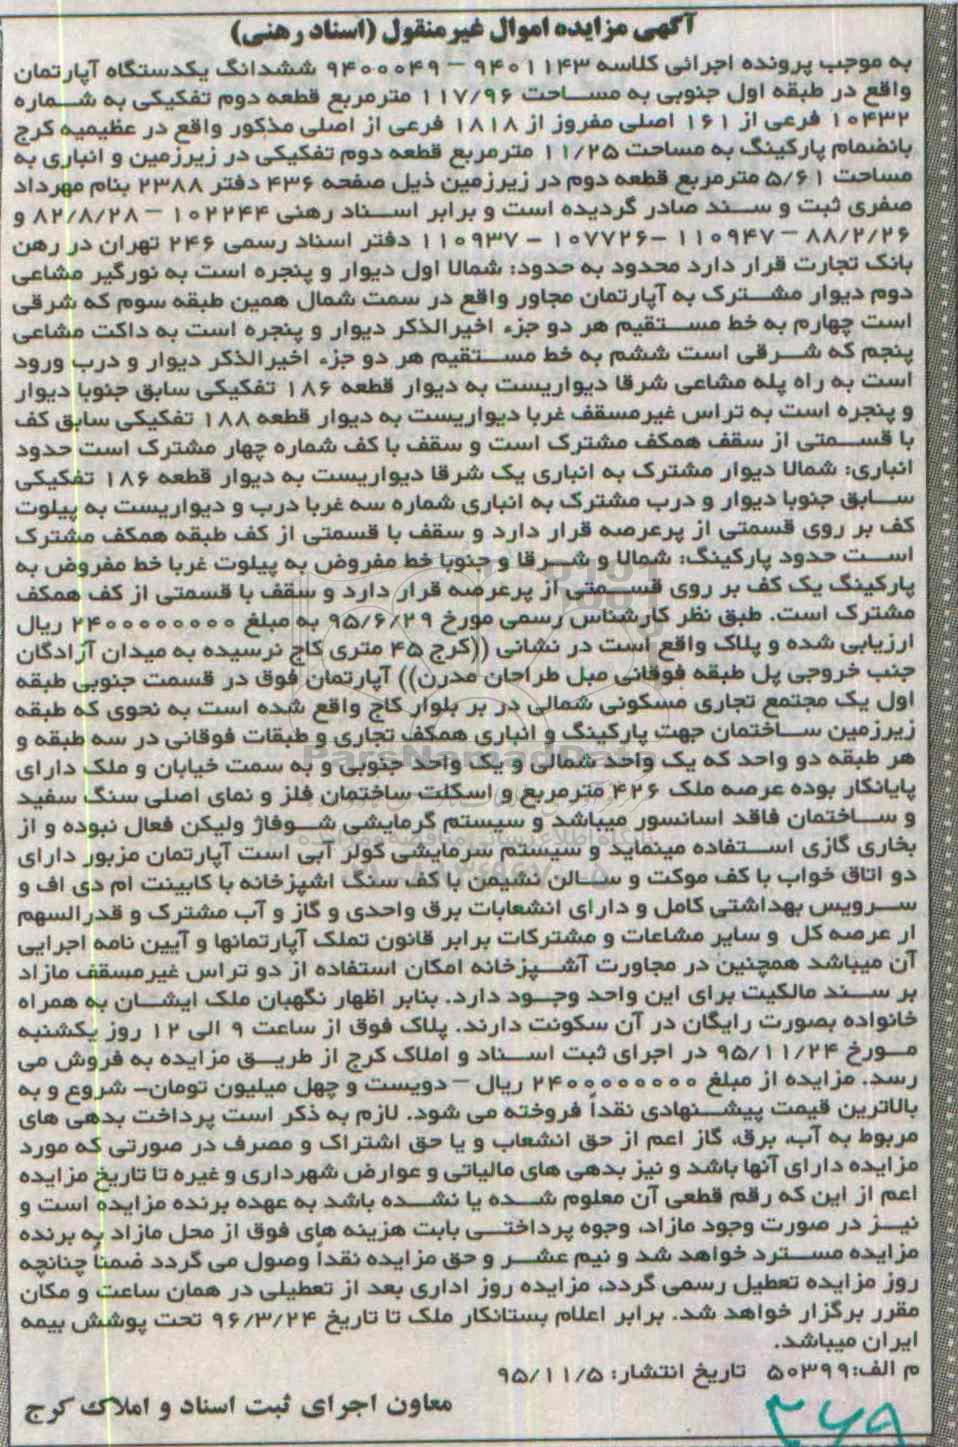 آگهی مزایده اموال غیرمنقول (اسناد رهنی)
به موجب پرونده اجرائی کلاسه ۹۴۰۱۱۴۳ – ۹۴۰۰۰۴۹ ششدانگ یکدستگاه آپارتمان
واقع در طبقه اول جنوبی به مساحت ۱۱۷/۹۶ مترمربع قطعه دوم تفکیکی به شماره
۱۰۴۳۲ فرعی از ۱۶۱ اصلی مفروز از ۱۸۱۸ فرعی از اصلی مذکور واقع در عظیمیه کرج
بانضمام پارکینگ به مساحت ۱۱/۲۵ مترمربع قطعه دوم تفکیکی در زیرزمین و انباری به
مساحت ۵/۶۱ مترمربع قطعه دوم در زیرزمین ذیل صفحه ۴۳۶ دفتر ۲۳۸۸ بنام مهرداد
صفری ثبت و سند صادر گردیده است و برابر اسناد رهنی ۱۰۲۲۴۴ – ۸۲/۸/۲۸ و
۸۸/۲/۲۶ – ۱۱۰۹۴۷ –۱۰۷۷۲۶ – ۱۱۰۹۳۷ دفتر اسناد رسمی ۲۴۶ تهران در رهن
بانک تجارت قرار دارد محدود به حدود: شمالا اول دیوار و پنجره است به نورگیر مشاعی
دوم دیوار مشترک به آپارتمان مجاور واقع در سمت شمال همین طبقه سوم که شرقی
است چهارم به خط مستقیم هر دو جزء اخیرالذکر دیوار و پنجره است به داکت مشاعی
پنجم که شرقی است ششم به خط مستقیم هر دو جزء اخیرالذکر دیوار و درب ورود
است به راه پله مشاعی شرقا دیواریست به دیوار قطعه ۱۸۶ تفکیکی سابق جنوبا دیوار
و پنجره است به تراس غیرمسقف غربا دیواریست به دیوار قطعه ۱۸۸ تفکیکی سابق کف
با قسمتی از سقف همکف مشترک است و سقف با کف شماره چهار مشترک است حدود
انباری: شمالا دیوار مشترک به انباری یک شرقا دیواریست به دیوار قطعه ۱۸۶ تفکیکی
سابق جنوبا دیوار و درب مشترک به انباری شماره سه غربا درب و دیواریست به پیلوت
کف بر روی قسمتی از پرعرصه قرار دارد و سقف با قسمتی از کف طبقه همکف مشترک
است حدود پارکینگ: شمالا و شرقا و جنوبا خط مفروض به پیلوت غربا خط مفروض به
پارکینگ یک کف بر روی قسمتی از پرعرصه قرار دارد و سقف با قسمتی از کف همکف
مشترک است. طبق نظر کارشناس رسمی مورخ ۹۵/۶/۲۹ به مبلغ ۲۴۰۰۰۰۰۰۰۰ ریال
ارزیابی شده و پلاک واقع است در نشانی ((کرج ۴۵ متری کاج نرسیده به میدان آزادگان
جنب خروجی پل طبقه فوقانی مبل طراحان مدرن)) آپارتمان فوق در قسمت جنوبی طبقه
اول یک مجتمع تجاری مسکونی شمالی در بر بلوار کاج واقع شده است به نحوی که طبقه
زیرزمین ساختمان جهت پارکینگ و انباری همکف تجاری و طبقات فوقانی در سه طبقه و
هر طبقه دو واحد که یک واحد شمالی و یک واحد جنوبی و به سمت خیابان و ملک دارای
پایانکار بوده عرصه ملک ۴۲۶ مترمربع و اسکلت ساختمان فلز و نمای اصلی سنگ سفید
و ساختمان فاقد اسانسور میباشد و سیستم گرمایشی شوفاژ ولیکن فعال نبوده و از
بخاری گازی استفاده مینماید و سیستم سرمایشی کولر آبی است آپارتمان مزبور دارای
دو اتاق خواب با کف موکت و سالن نشیمن با کف سنگ اشپزخانه با کابینت ام دی اف و
سرویس بهداشتی کامل و دارای انشعابات برق واحدی و گاز و آب مشترک و قدرالسهم
ار عرصه کل و سایر مشاعات و مشترکات برابر قانون تملک آپارتمانها و آیین نامه اجرایی
آن میباشد همچنین در مجاورت آشپزخانه امکان استفاده از دو تراس غیرمسقف مازاد
بر سند مالکیت برای این واحد وجود دارد. بنابر اظهار نگهبان ملک ایشان به همراه
خانواده بصورت رایگان در آن سکونت دارند. پلاک فوق از ساعت ۹ الی ۱۲ روز یکشنبه
مورخ ۹۵/۱۱/۲۴ در اجرای ثبت اسناد و املاک کرج از طریق مزایده به فروش می
رسد. مزایده از مبلغ ۲۴۰۰۰۰۰۰۰۰ ریال – دویست و چهل میلیون تومان– شروع و به
بالاترین قیمت پیشنهادی نقداً فروخته می شود. لازم به ذکر است پرداخت بدهی های
مربوط به آب، برق، گاز اعم از حق انشعاب و یا حق اشتراک و مصرف در صورتی که مورد
مزایده دارای آنها باشد و نیز بدهی های مالیاتی و عوارض شهرداری و غیره تا تاریخ مزایده
اعم از این که رقم قطعی آن معلوم شده یا نشده باشد به عهده برنده مزایده است و
نیز در صورت وجود مازاد، وجوه پرداختی بابت هزینه های فوق از محل مازاد به برنده
مزایده مسترد خواهد شد و نیم عشر و حق مزایده نقداً وصول می گردد ضمناً چنانچه
روز مزایده تعطیل رسمی گردد، مزایده روز اداری بعد از تعطیلی در همان ساعت و مکان
مقرر برگزار خواهد شد. برابر اعلام بستانکار ملک تا تاریخ ۹۶/۳/۲۴ تحت پوشش بیمه
ایران میباشد.
م الف:۵۰۳۹۹ تاریخ انتشار: ۹۵/۱۱/۵
معاون اجرای ثبت اسناد و املاک کرج
۳۶۹
ParsNamadData